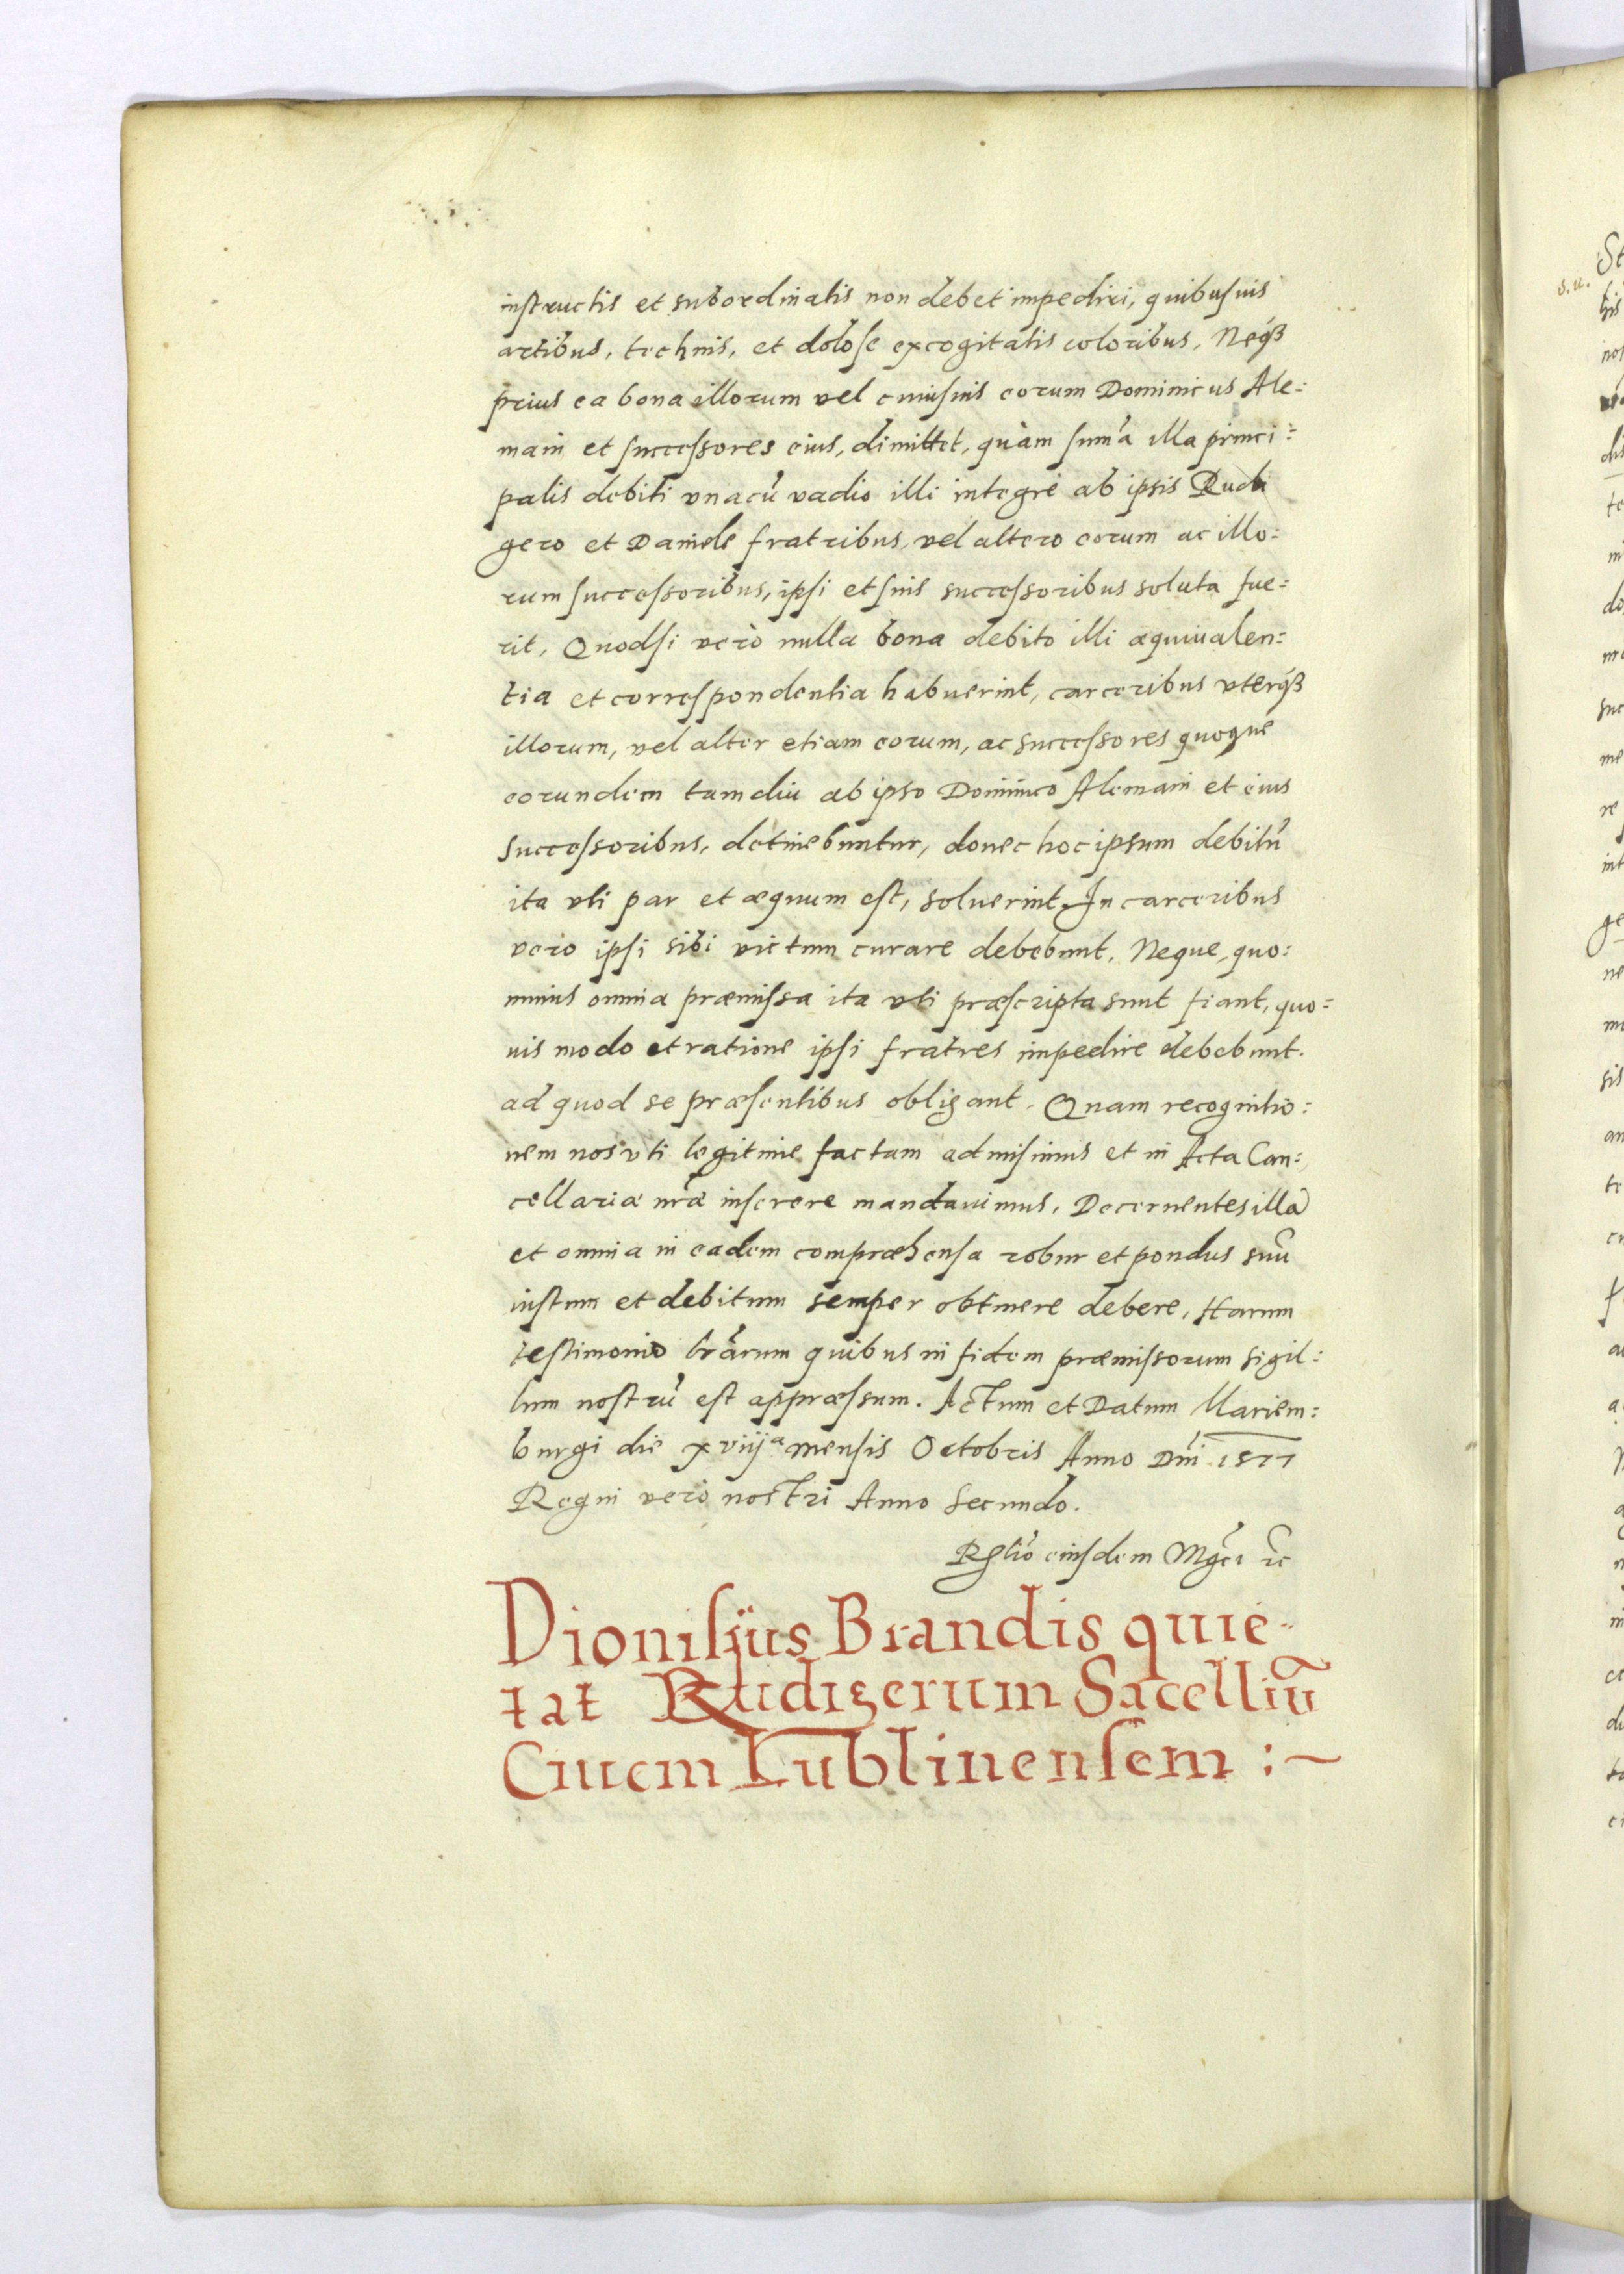 instructis et subordinatis non debet impediri, quibusuis
artibus, technis, et dolose excogitatis coloribus, Neqꝫ
prius ea bona illorum vel cuiusuis eorum Dominicus Ale:
mani et successores eius, dimittet, quàm sum̃a illa princi:
palis debiti vnacũ vadio illi integrè ab ipsis Rudi
gero et Daniele fratribus, vel altero eorum ac illo:
rum successoribus, ipsi et suis successoribus soluta fue:
rit, Quodsi verò nulla bona debito illi æquiualen:
tia et correspondentia habuerint, carceribus vterqꝫ
illorum, vel alter etiam eorum, ac successores quoque
eorundem tamdiu ab ipso Dominico Alemani et eius
successoribus, detinebuntur, donec hoc ipsum debitũ
ita vti par et æquum est, soluerint, In carceribus
vero ipsi sibi victum curare debebunt, Neque, quo:
minus omnia præmissa ita vti præscripta sunt fiant, quo:
uis modo et ratione ipsi fratres impedire debebunt.
ad quod se præsentibus obligant. Quam recognitio:
nem nos vti legitime factam admisimus et in Acta Can:
cellariæ nr̃æ inserere mandauimus, Decernentes illã
et omnia in eadem compræhensa robur et pondus suũ
iustum et debitum semper obtinere debere, Harum
testimonio lr̃arum quibus in fidem præmissorum sigil:
lum nostrũ est appræssum. Actum et Datum Mariem:
burgi die xviijᵃ mensis Octobris Anno Dñi 1577
Regni vero nostri Anno Secundo.
eiusdem
Dionisijus Brandis quie-
tat Rudigerum Sacelliũ
Ciuem Lublinensem :~
s.u.